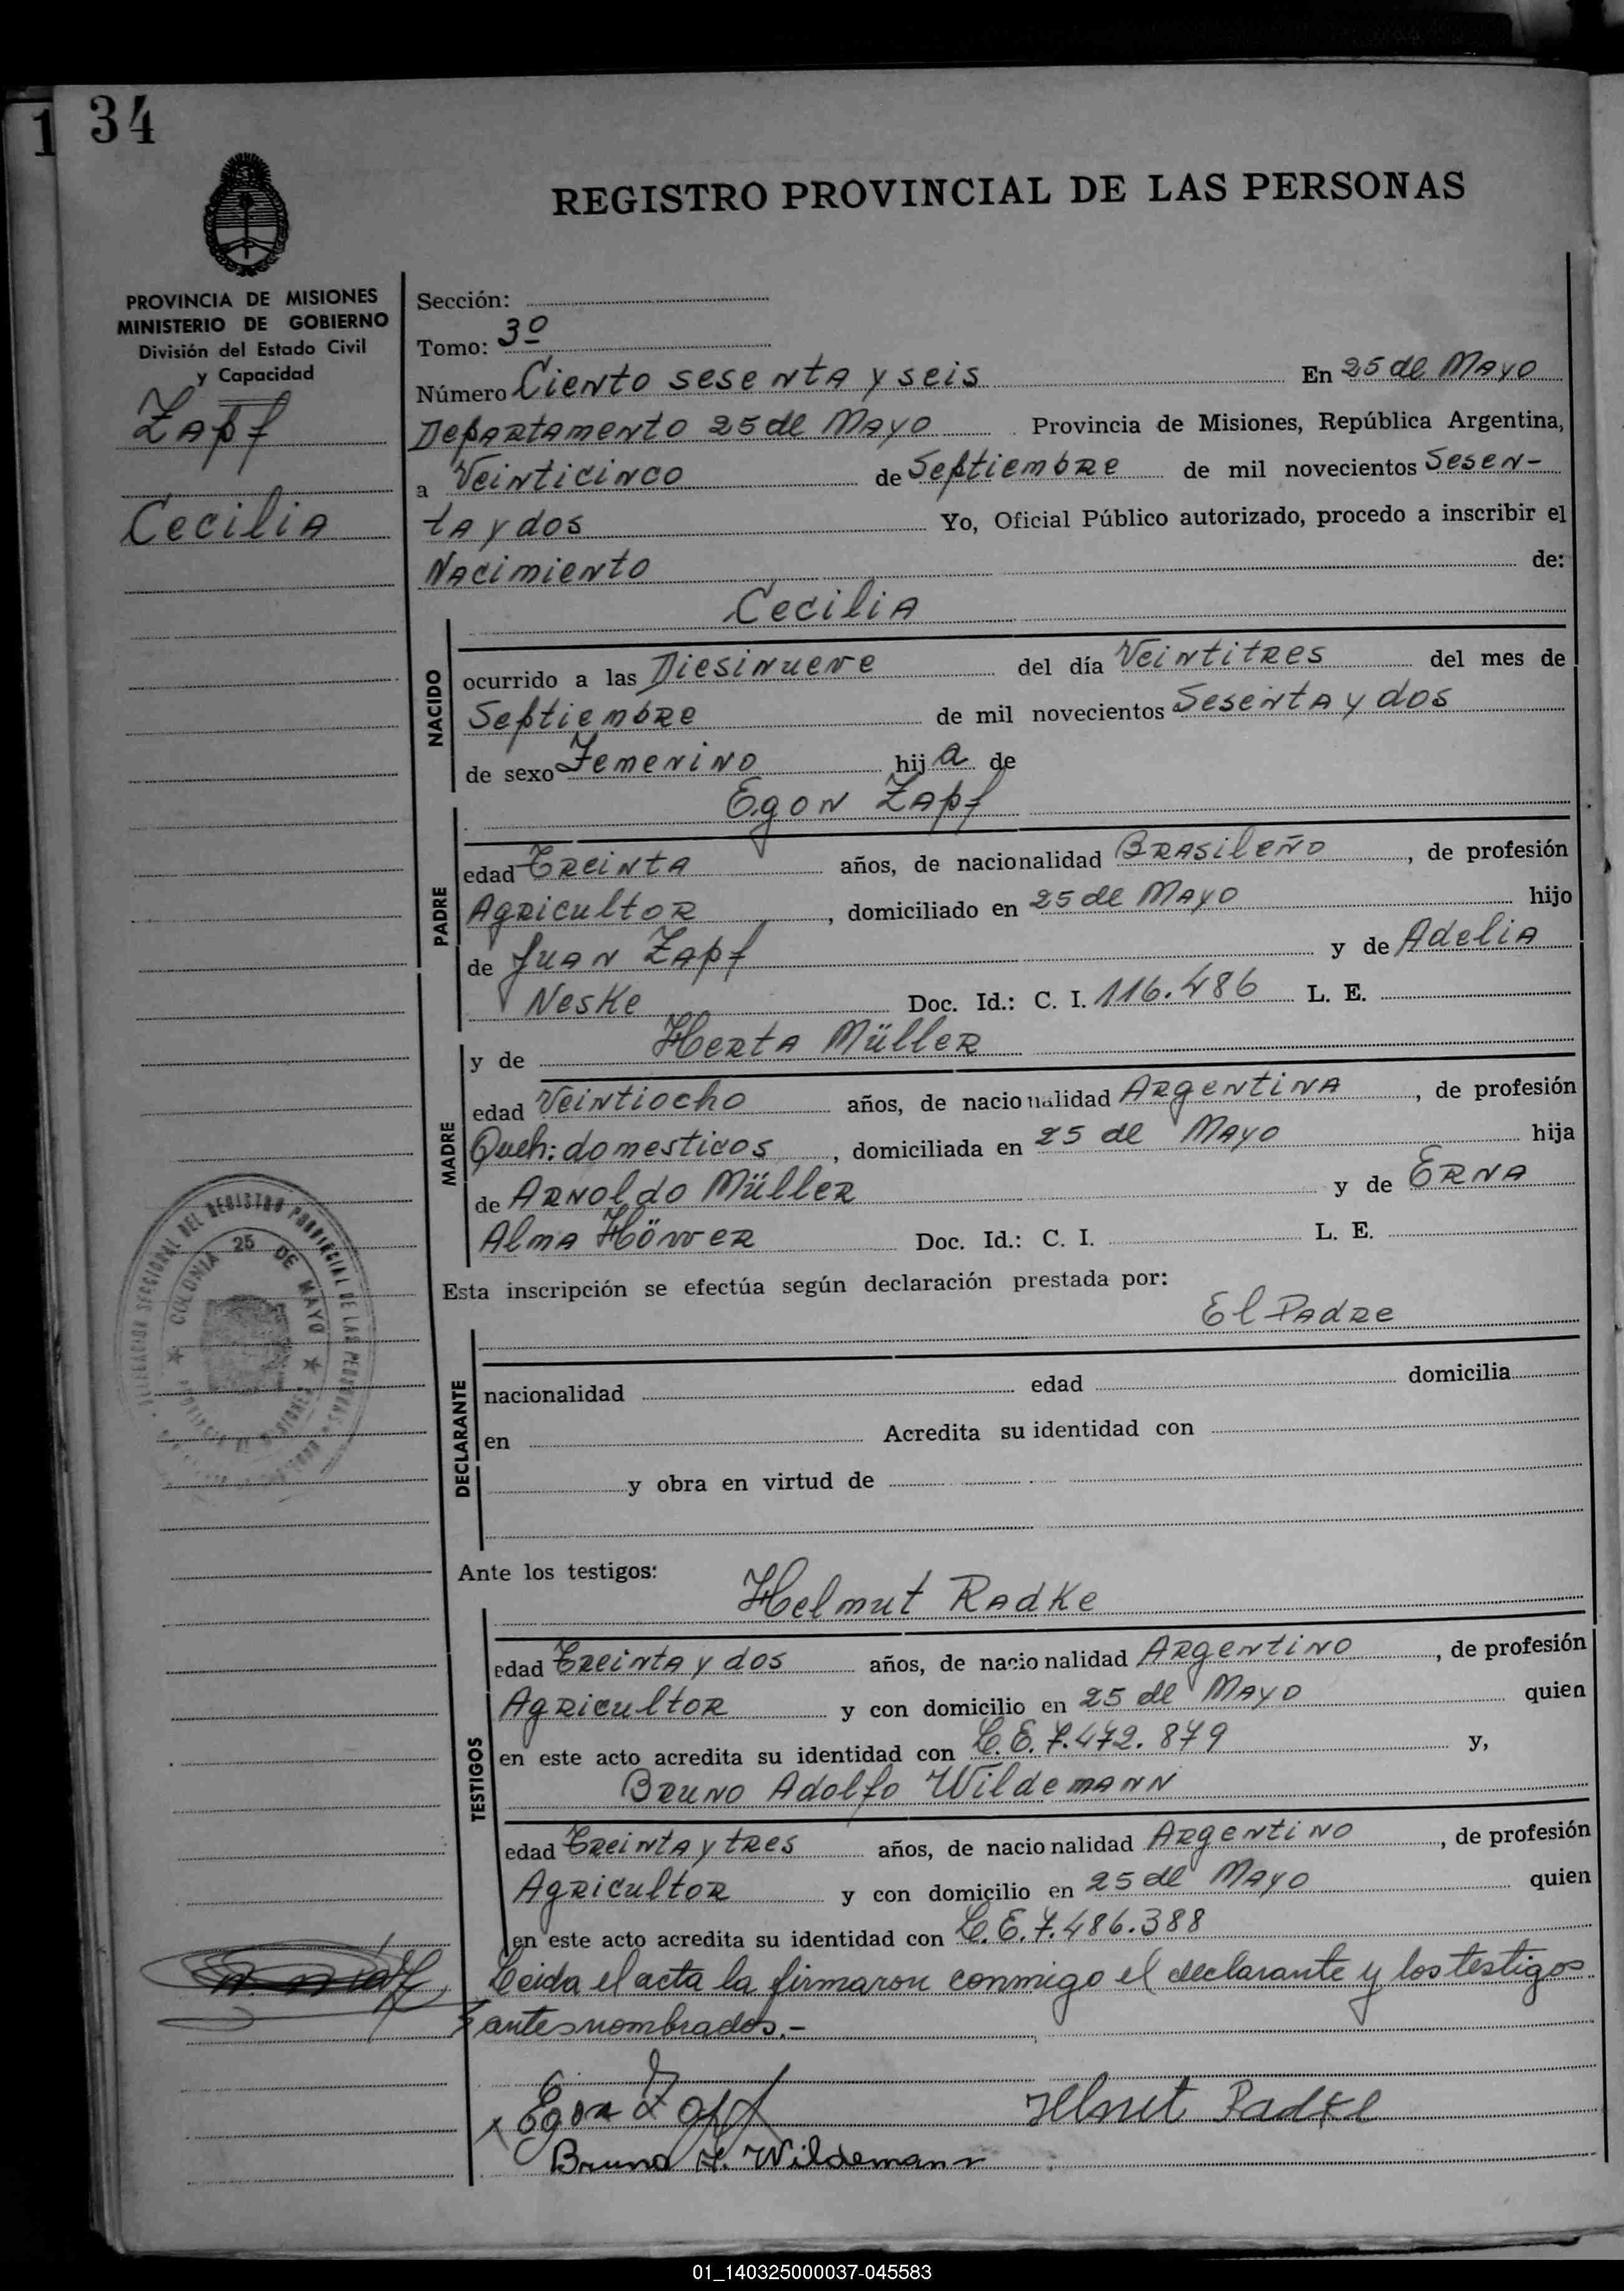 1
34
REGISTRO PROVINCIAL DE LAS PERSONAS
PROVINCIA DE MISIONES
MINISTERIO DE GOBIERNO
División del Estado Civil
y Capacidad
Zapf
Cecilia
Sección:
Tomo: 3º
Número Ciento sesenta y seis En 25 de Mayo
Departamento 25 de Mayo Provincia de Misiones, República Argentina,
a Veinticinco de Septiembre de mil novecientos Sesen-
ta y dos Yo, Oficial Público autorizado, procedo a inscribir el
Nacimiento de:
Cecilia
NACIDO
ocurrido a las Diesinueve del día Veintitres del mes de
Septiembre de mil novecientos Sesenta y dos
de sexo Femenino hija de
Egon Zapf
PADRE
edad Treinta años, de nacionalidad Brasileño, de profesión
Agricultor, domiciliado en 25 de Mayo hijo
de Juan Zapf y de Adelia
Neske Doc. Id.: C. I. 116.486 L. E.
y de Herta Müller
MADRE
edad Veintiocho años, de nacionalidad Argentina, de profesión
Queh: domesticos, domiciliada en 25 de Mayo hija
de Arnoldo Müller y de Erna
Alma Doc. Id.: C. I. L. E.
COLONIA 25 DE MAYO
Esta inscripción se efectúa según declaración prestada por:
El Padre
DECLARANTE
nacionalidad edad domicilia
en Acredita su identidad con
y obra en virtud de
Ante los testigos:
Helmut Radke
TESTIGOS
edad Treinta y dos años, de nacionalidad Argentino, de profesión
Agricultor y con domicilio en 25 de Mayo quien
en este acto acredita su identidad con L.E. 7.472.879 y,
Bruno Adolfo Wildemann
edad Treinta y tres años, de nacionalidad Argentino, de profesión
Agricultor y con domicilio en 25 de Mayo quien
en este acto acredita su identidad con L.E. 7.486.388
Leida el acta la firmaron conmigo el declarante y los testigos
antes nombrados.-
Egon Zapf Helmut Radke
Bruno A. Wildemann
01_140325000037-045583